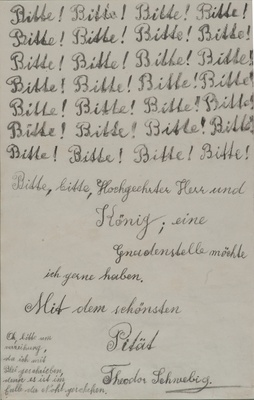 Bitte! Bitte! Bitte! Bitte!
Bitte! Bitte! Bitte! Bitte!
Bitte! Bitte! Bitte! Bitte!
Bitte! Bitte! Bitte! Bitte!
Bitte! Bitte! Bitte! Bitte!
Bitte! Bitte! Bitte! Bitte!
Bitte! Bitte! Bitte! Bitte!
Bitte, bitte, Hochgeehrter Herr und
König; eine
Gnadenstelle möchte
ich gerne haben.
Mit dem schönsten
Pität
Theodor Schwebig.
bitte um
da ich mit